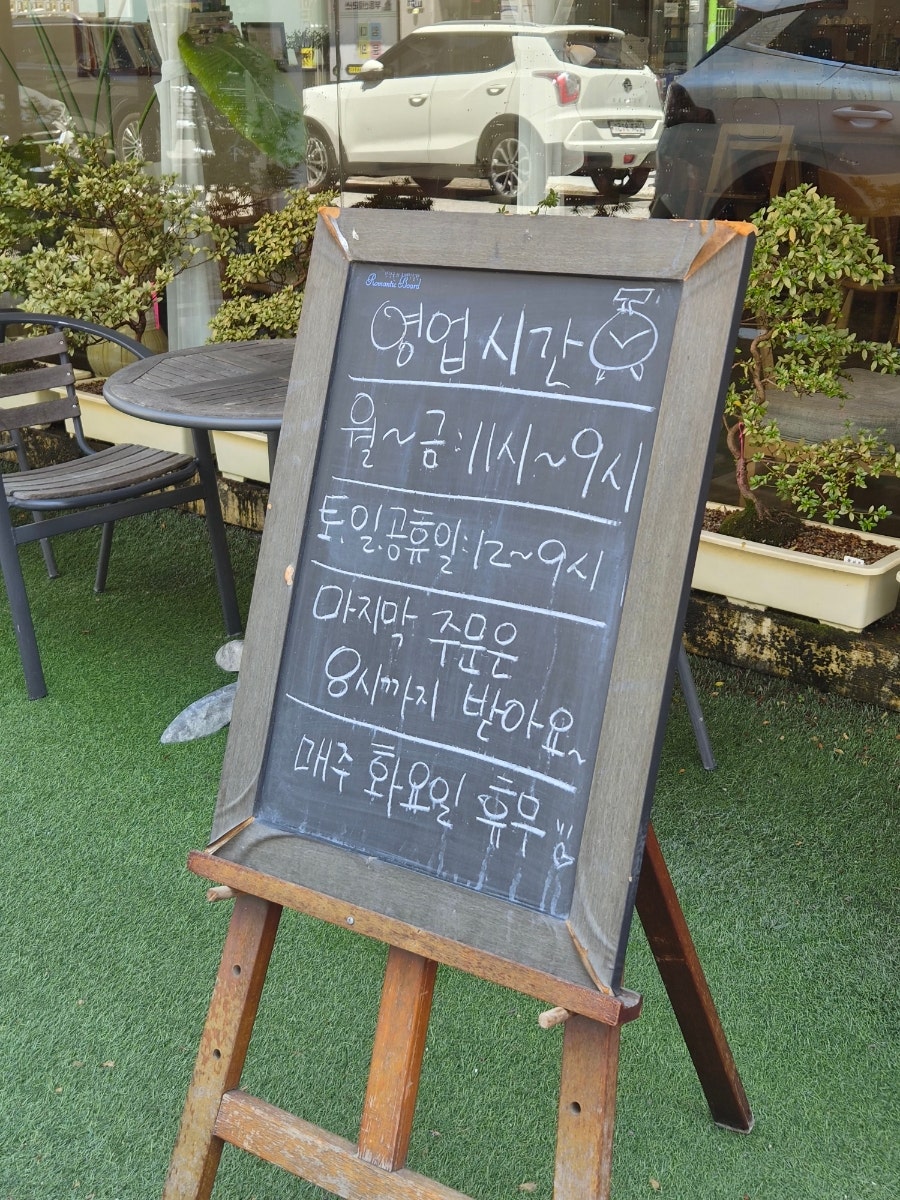 Romantic Board
영업시간
월~금:11시~9시
토.일.공휴일:12~9시
마지막 주문은
8시까지 받아요~
매주 화요일 휴무